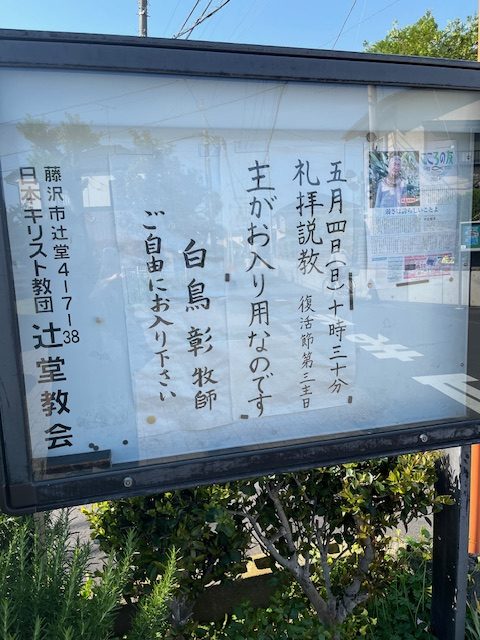 五月四日(日)十時三十分
礼拝説教 復活節第三主日
主がお入り用なのです
白鳥 彰 牧師
ご自由にお入り下さい
藤沢市辻堂4-7-38
日本キリスト教団 辻堂教会
こころの友